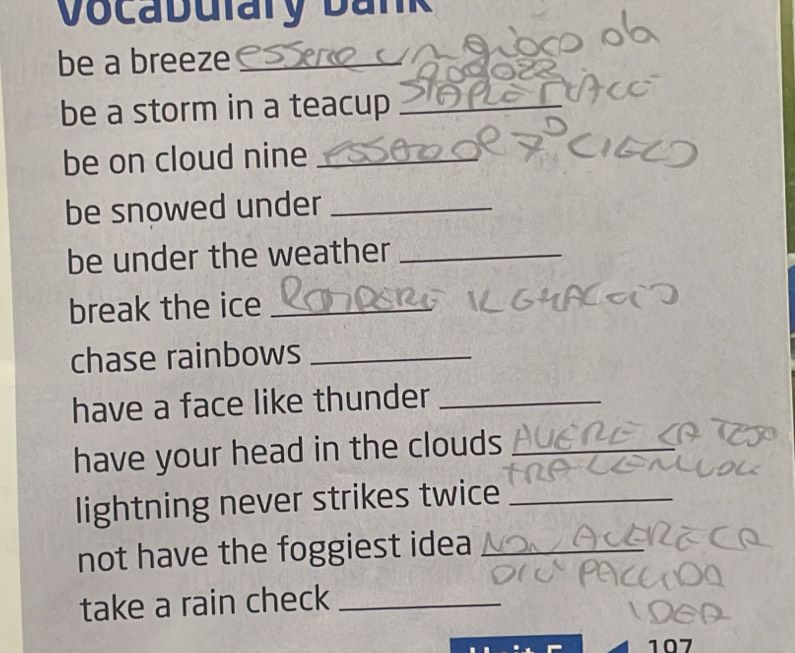 Vocabulary Bank
be a breeze essere un gioco da
ragazzi
be a storm in a teacup
be on cloud nine essere al 7° CIELO
be snowed under
be under the weather
break the ice ROMPERE IL GHIACCIO
chase rainbows
have a face like thunder
have your head in the clouds AVERE LA TESTA
TRA LE NUVOLE
lightning never strikes twice
not have the foggiest idea NON AVERE LA
PIÙ PALLIDA
take a rain check IDEA
197